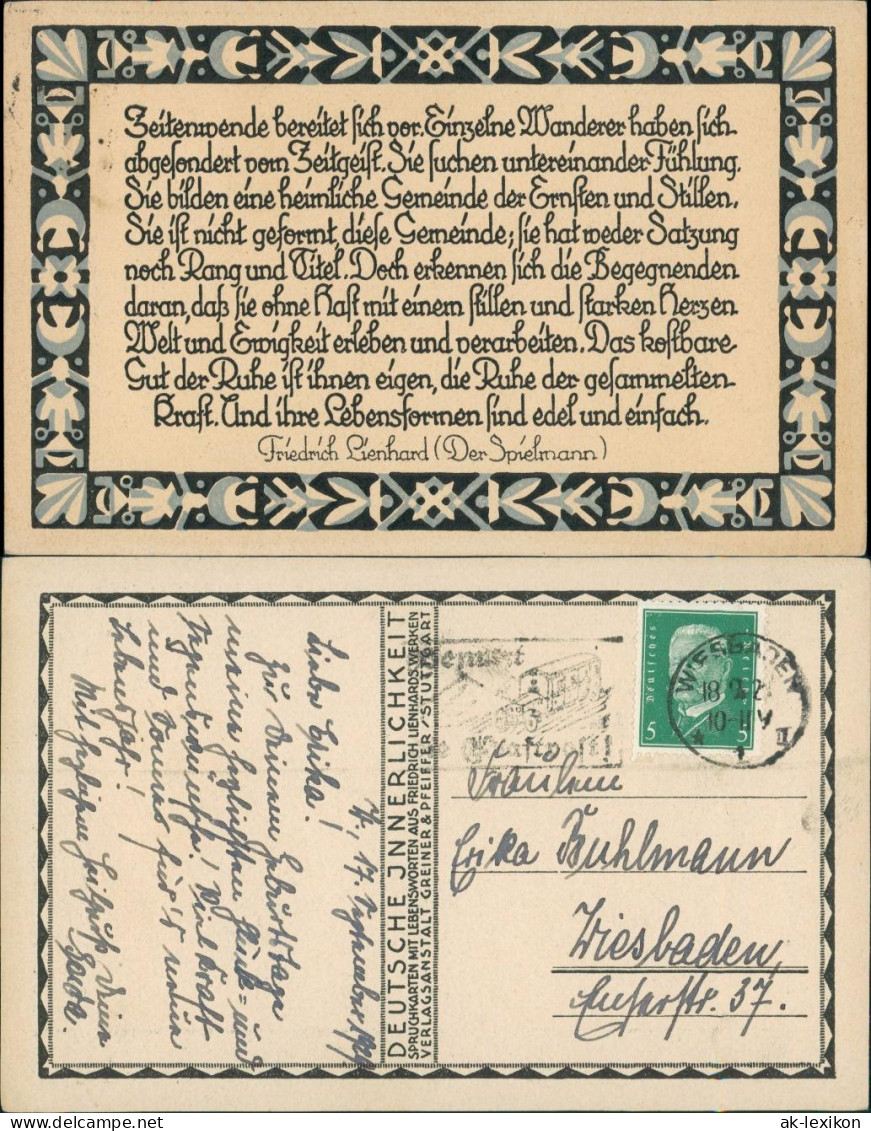 Zeitenwende bereitet sich vor. Einzelne Wanderer haben sich
abgesondert vom Zeitgeist. Sie suchen untereinander Fühlung.
Sie bilden eine heimliche Gemeinde der Ernsten und Stillen.
Sie ist nicht geformt, diese Gemeinde; sie hat weder Satzung
noch Rang und Titel. Doch erkennen sich die Begegnenden
daran, daß sie ohne Hast mit einem stillen und starken Herzen
Welt und Ewigkeit erleben und verarbeiten. Das kostbare
Gut der Ruhe ist ihnen eigen, die Ruhe der gesammelten
Kraft. Und ihre Lebensformen sind edel und einfach.
Friedrich Lienhard (Der Spielmann)
17. September 1929
Liebe Erika!
Zu Deinem Geburtstage
meine herzlichsten Glück- und
Segenswünsche! Viel Kraft
und Sonne für's neue
Lebensjahr!
Mit herzlichem Deine
Gerda.
DEUTSCHE JNNERLICHKEIT
SPRUCHKARTEN MIT LEBENSWORTEN AUS FRIEDRICH LIENHARDS WERKEN
VERLAGSANSTALT GREINER & PFEIFFER / STUTTGART
Kraftpost!
Deutsches
5 5
WIESBADEN
18.9.2
10-11V
II
Fräulein
Erika Buhlmann
Wiesbaden
Emserstr. 37.
ak-lexikon